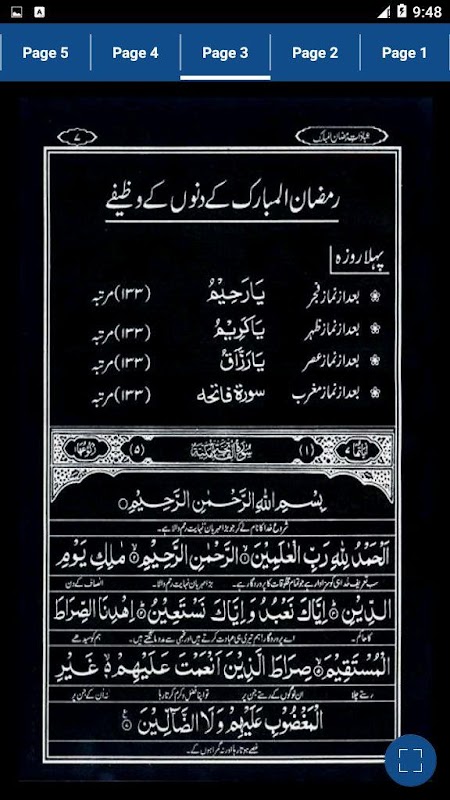 9:48
Page 5 Page 4 Page 3 Page 2 Page 1
عبادات رمضان المبارک
۷
رمضان المبارک کے دنوں کے وظیفے
پہلا روزہ
بعد از نماز فجر یَا رَحِیْمُ (۱۳۳) مرتبہ
بعد از نماز ظہر یَا کَرِیْمُ (۱۳۳) مرتبہ
بعد از نماز عصر یَا رَزَّاقُ (۱۳۳) مرتبہ
بعد از نماز مغرب سورۃ فاتحہ (۱۳۳) مرتبہ
اٰیَاتُهَا ۷ (۱) سُوْرَةُ الْفَاتِحَةِ مَكِّيَّةٌ (۵) رُكُوْعُهَا
بِسْمِ اللهِ الرَّحْمٰنِ الرَّحِيْمِ
شروع خدا کا نام لے کر جو بڑا مہربان نہایت رحم والا ہے۔
اَلْحَمْدُ لِلّٰهِ رَبِّ الْعٰلَمِيْنَ الرَّحْمٰنِ الرَّحِيْمِ مٰلِكِ يَوْمِ
سب تعریف خدا ہی کو سزاوار ہے جو تمام مخلوقات کا پروردگار ہے۔ بڑا مہربان نہایت رحم والا۔ انصاف کے دن
الدِّيْنِ اِيَّاكَ نَعْبُدُ وَ اِيَّاكَ نَسْتَعِيْنُ اِهْدِنَا الصِّرَاطَ
کا حاکم۔ اے پروردگار ہم تیری ہی عبادت کرتے ہیں اور تجھی سے مدد مانگتے ہیں۔ ہم کو سیدھے
الْمُسْتَقِيْمَ صِرَاطَ الَّذِيْنَ اَنْعَمْتَ عَلَيْهِمْ غَيْرِ
رستے چلا ان لوگوں کے رستے جن پر تو اپنا فضل و کرم کرتا رہا نہ ان کے جن پر
الْمَغْضُوْبِ عَلَيْهِمْ وَلَا الضَّآلِّيْنَ
غصے ہوتا رہا اور نہ گمراہوں کے۔